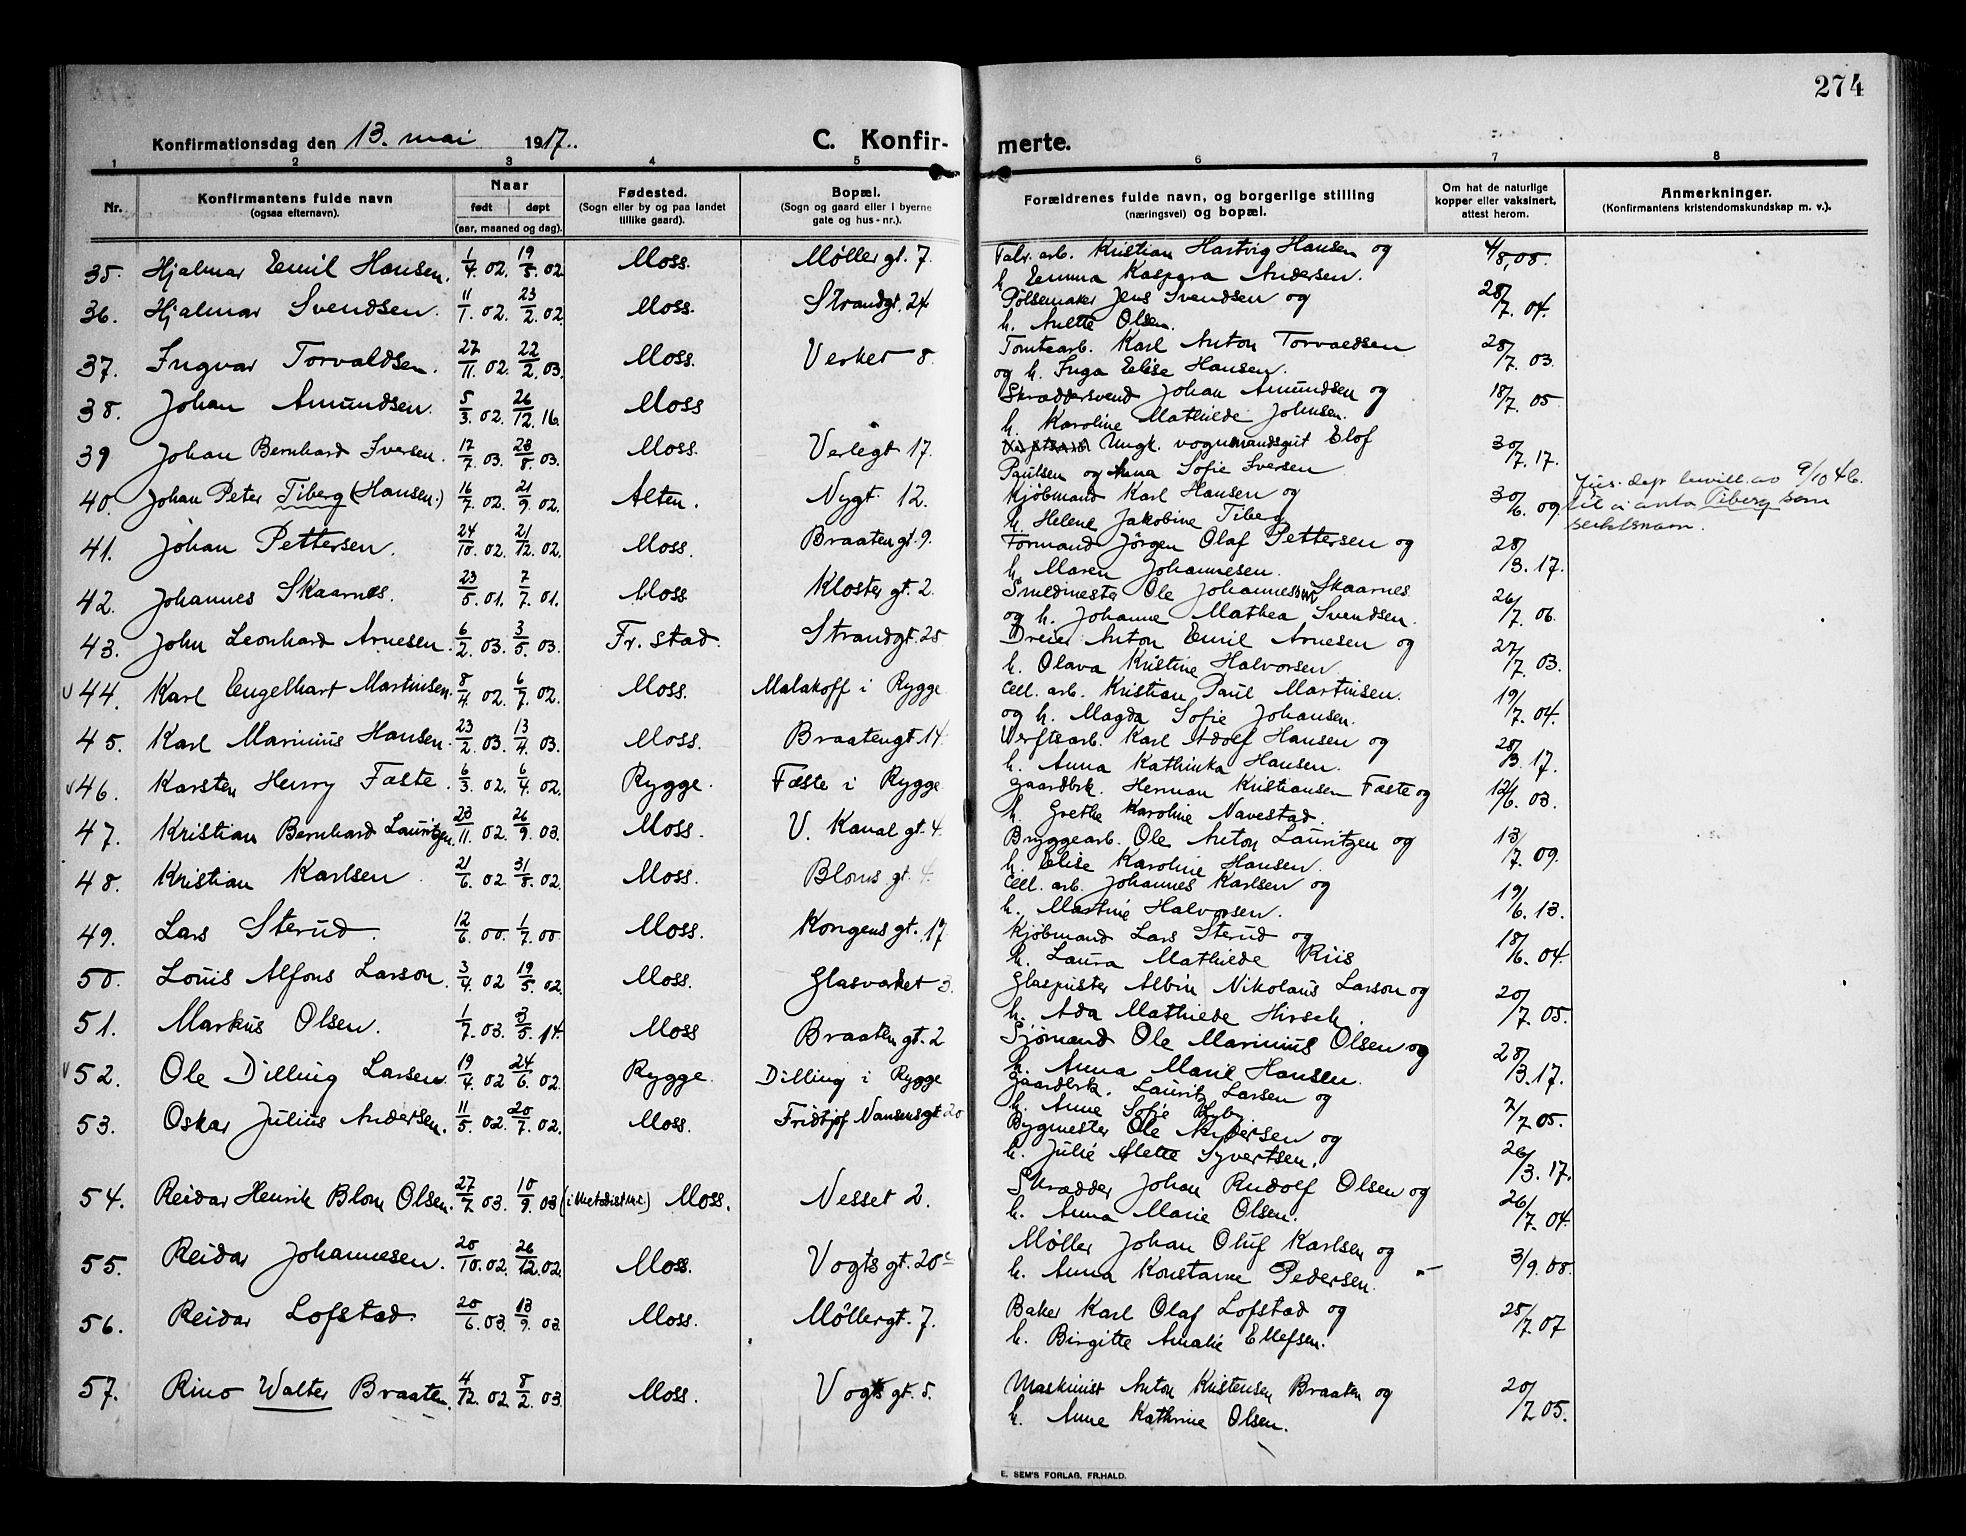 274
Konfirmationsdag den 13. mai 1917.
C. Konfirmerte.
1 2 3 4 5 6 7 8
Nr.
Konfirmantens fulde navn
(ogsaa efternavn).
Naar
født døpt
(aar, maaned og dag).
Fødested.
(Sogn eller by og paa landet
tillike gaard).
Bopæl.
(Sogn og gaard eller i byerne
gate og hus-nr.).
Forældrenes fulde navn, og borgerlige stilling
(næringsvei) og bopæl.
Om hat de naturlige
kopper eller vaksinert,
attest herom.
Anmerkninger.
(Konfirmantens kristendomskundskap m. v.).
35. Hjalmar Emil Hansen. 1/4 02. 19/5 02. Moss. Møllergt. 7. Fabr. arb. Kristian Hartvig Hansen og 4/8 08.
h. Emma Kaspara Andersen.
36. Hjalmar Svendsen. 11/1 02. 23/2 02. Moss. Strandgt. 24 Pølsemaker Jens Svendsen og 28/7. 04.
h. Anette Olsen.
37. Ingvar Torvaldsen. 27/11 02. 22/2 03. Moss. Verket 8. Tomtearb. Karl Anton Torvaldsen 28/7. 03.
og h. Inga Elise Hansen.
38. Johan Amundsen. 5/3 02. 26/12 16. Moss Skræddersvend Johan Amundsen og 18/7. 05
h. Karoline Mathilde Johnsen.
39 Johan Bernhard Iversen. 17/7 03. 23/8 03. Moss. Verlegt 17. Ungk. vognmandsgut Elof 30/7. 17.
Paulsen og Anna Sofie Iversen
40. Johan Peter Tiberg (Hansen.) 16/7 02. 21/9 02. Alten. Nygt. 12. Kjøbmand Karl Hansen og 30/6. 09 Jus. dep bevill. av 9/10 46.
h. Helene Jakobine Tiberg til å anta Tiberg som
slektsnavn.
41. Johan Pettersen. 24/10 02. 21/12 02. Moss. Braatengt. 9. Formand Jörgen Olaf Pettersen og 28/3. 17.
h. Maren Johannesen.
42. Johannes Skaarnes. 23/5 01. 7/7 01. Moss Klostergt. 2. Smedmester Ole Johannessen Skaarnes 26/7. 06.
og h. Johanne Mathea Svendsen.
43. John Leonhard Arnesen. 6/2 03. 3/5 03. Fr. stad. Strandgt. 25 Dreier Anton Emil Arnesen og 27/7 03.
h. Olava Kristine Halvorsen
44. Karl Engelhart Martinsen. 8/4 02. 6/7 02. Moss. Malakoff i Rygge Cell. arb. Kristian Paul Martinsen. 19/7. 04.
og h. Magda Sofie Johansen.
45. Karl Marinius Hansen. 23/2 03. 13/4 03. Moss. Braatengt. 14. Verftsarb. Karl Adolf Hansen og 28/3. 17.
h. Anna Kathinka Hansen.
46. Karsten Henry Fæste. 6/3 02. 6/4 02. Rygge. Fæste i Rygge Gaardbrk. Herman Kristiansen Fæste og 12/6. 03.
h. Grethe Karoline Navestad.
47. Kristian Bernhard Lauritzen. 23/11 02. 26/9 03. Moss. V. Kanalgt. 4. Bryggearb. Ole Anton Lauritzen og 13/7. 09.
h. Elise Karoline Hansen.
48. Kristian Karlsen. 21/6 02 31/8 02. Moss. Blomsgt. 4. Cell. arb. Johannes Karlsen og 19/6. 13.
h. Martine Halvorsen.
49. Lars Sterud. 12/6 00. 1/7 00. Moss. Kongensgt. 17 Kjøbmand Lars Sterud og 18/6. 04.
h. Laura Mathilde Riis
50. Louis Alfons Larson. 3/4 02 19/5 02. Moss. Glasværket 3. Glaspuster Albin Nikolaus Larson og 20/7. 05.
h. Ada Mathilde Hirsch.
51. Markus Olsen. 1/7 03. 3/5 14. Moss Braatengt. 2 Sjømand Ole Marinius Olsen og 28/3. 17.
h. Anna Marie Hansen.
52. Ole Dilling Larsen. 19/4 02 24/6 02. Rygge. Dilling i Rygge Gaardbrk. Lauritz Larsen og 7/7 05.
h. Anne Sofie
53. Oskar Julius Andersen. 11/5 02. 20/7 02. Moss. Fridtjof Nansensgt 20 Bygmester Ole Andersen og 26/3. 17.
h. Julie Alette Syvertsen.
54. Reidar Henrik Blom Olsen. 27/7 03. 10/9 03 (i Metodistmt.) Moss. Nesset 2. Skrædder Johan Rudolf Olsen og 26/7. 04.
h. Anna Marie Olsen.
55. Reidar Johannesen. 20/10. 02. 26/12. 02. Moss. Vogtsgt. 20 Møller Johan Oluf Karlsen og 3/9. 08.
h. Anna Konstanse Pedersen.
56. Reidar Lofstad. 20/6. 03. 13/9 03. Moss. Møllergt. 7. Baker Karl Olaf Lofstad og 25/7. 07
h. Birgitte Amalie Ellefsen.
57. Rino Walter Braaten. 4/12. 02. 8/2 03. Moss. Vogtsgt. 5. Maskinist Anton Kristensen Braaten og 20/7 05.
h. Anne Kathrine Olsen.
E. SEM'S FORLAG, FR.HALD.